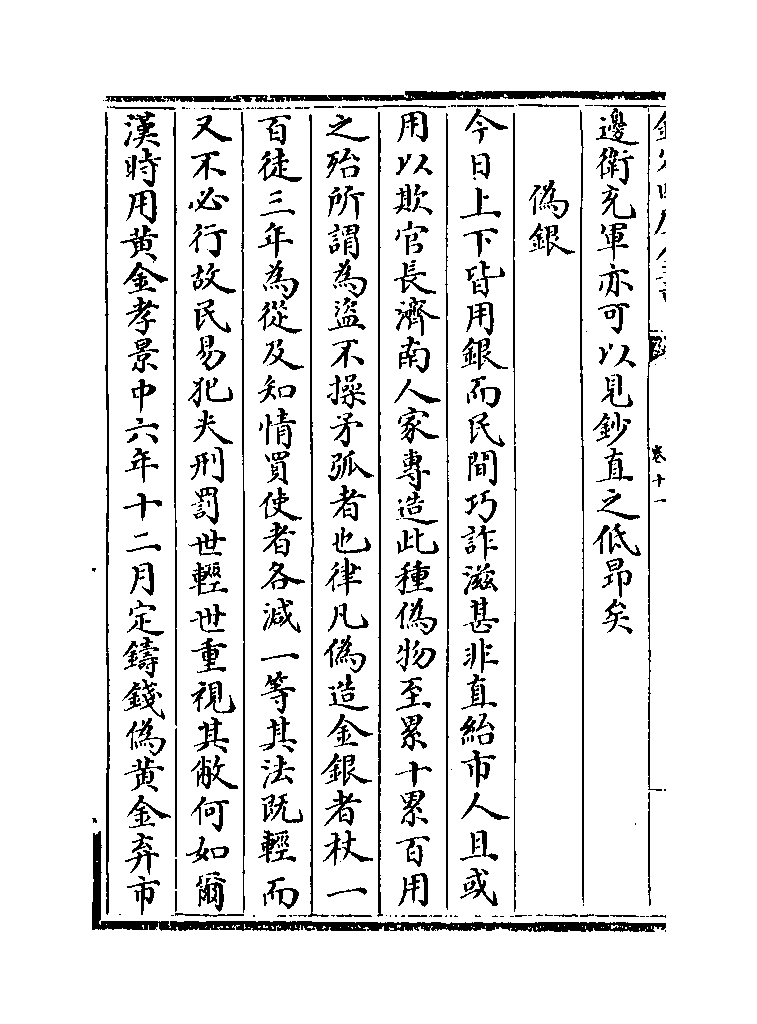 卷十一
邊衛充軍亦可以見鈔直之低昂矣
偽銀
今日上下皆用銀而民間巧詐滋甚非直紿市人且或
用以欺官長濟南人家專造此種偽物至累十累百用
之殆所謂為盜不操矛弧者也律凡偽造金銀者杖一
百徒三年為從及知情買使者各減一等其法既輕而
又不必行故民易犯夫刑罰世輕世重視其敝何如爾
漢時用黄金孝景中六年十二月定鑄錢偽黄金弃市